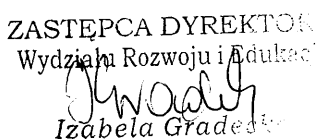 ZASTĘPCA DYREKTORA
Wydziału Rozwoju i Edukacji
Izabela